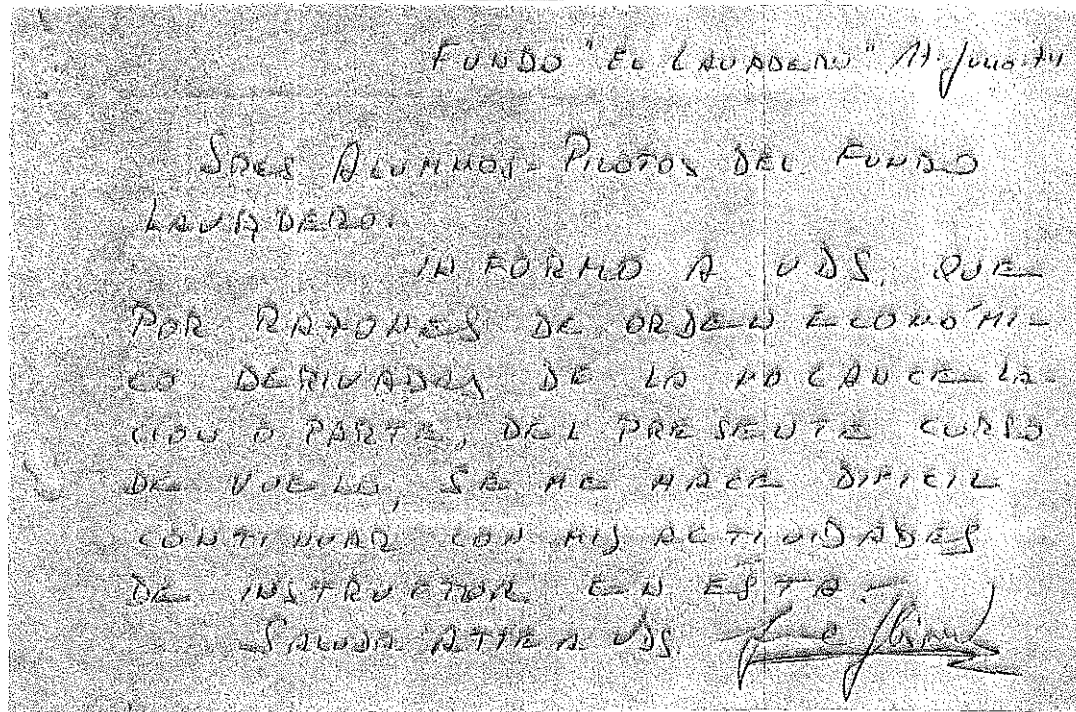 FUNDO "EL LAVADERO" 17-Junio-74
SRES ALUMNOS-PILOTOS DEL FUNDO
LAVADERO.
INFORMO A UDS. QUE
POR RAZONES DE ORDEN ECONÓMI-
CO DERIVADAS DE LA NO CANCELA-
CION O PARTE, DEL PRESENTE CURSO
DE VUELO, SE ME HACE DIFICIL
CONTINUAR CON MIS ACTIVIDADES
DE INSTRUCTOR EN ESTA.-
SALUDA ATTE A UDS